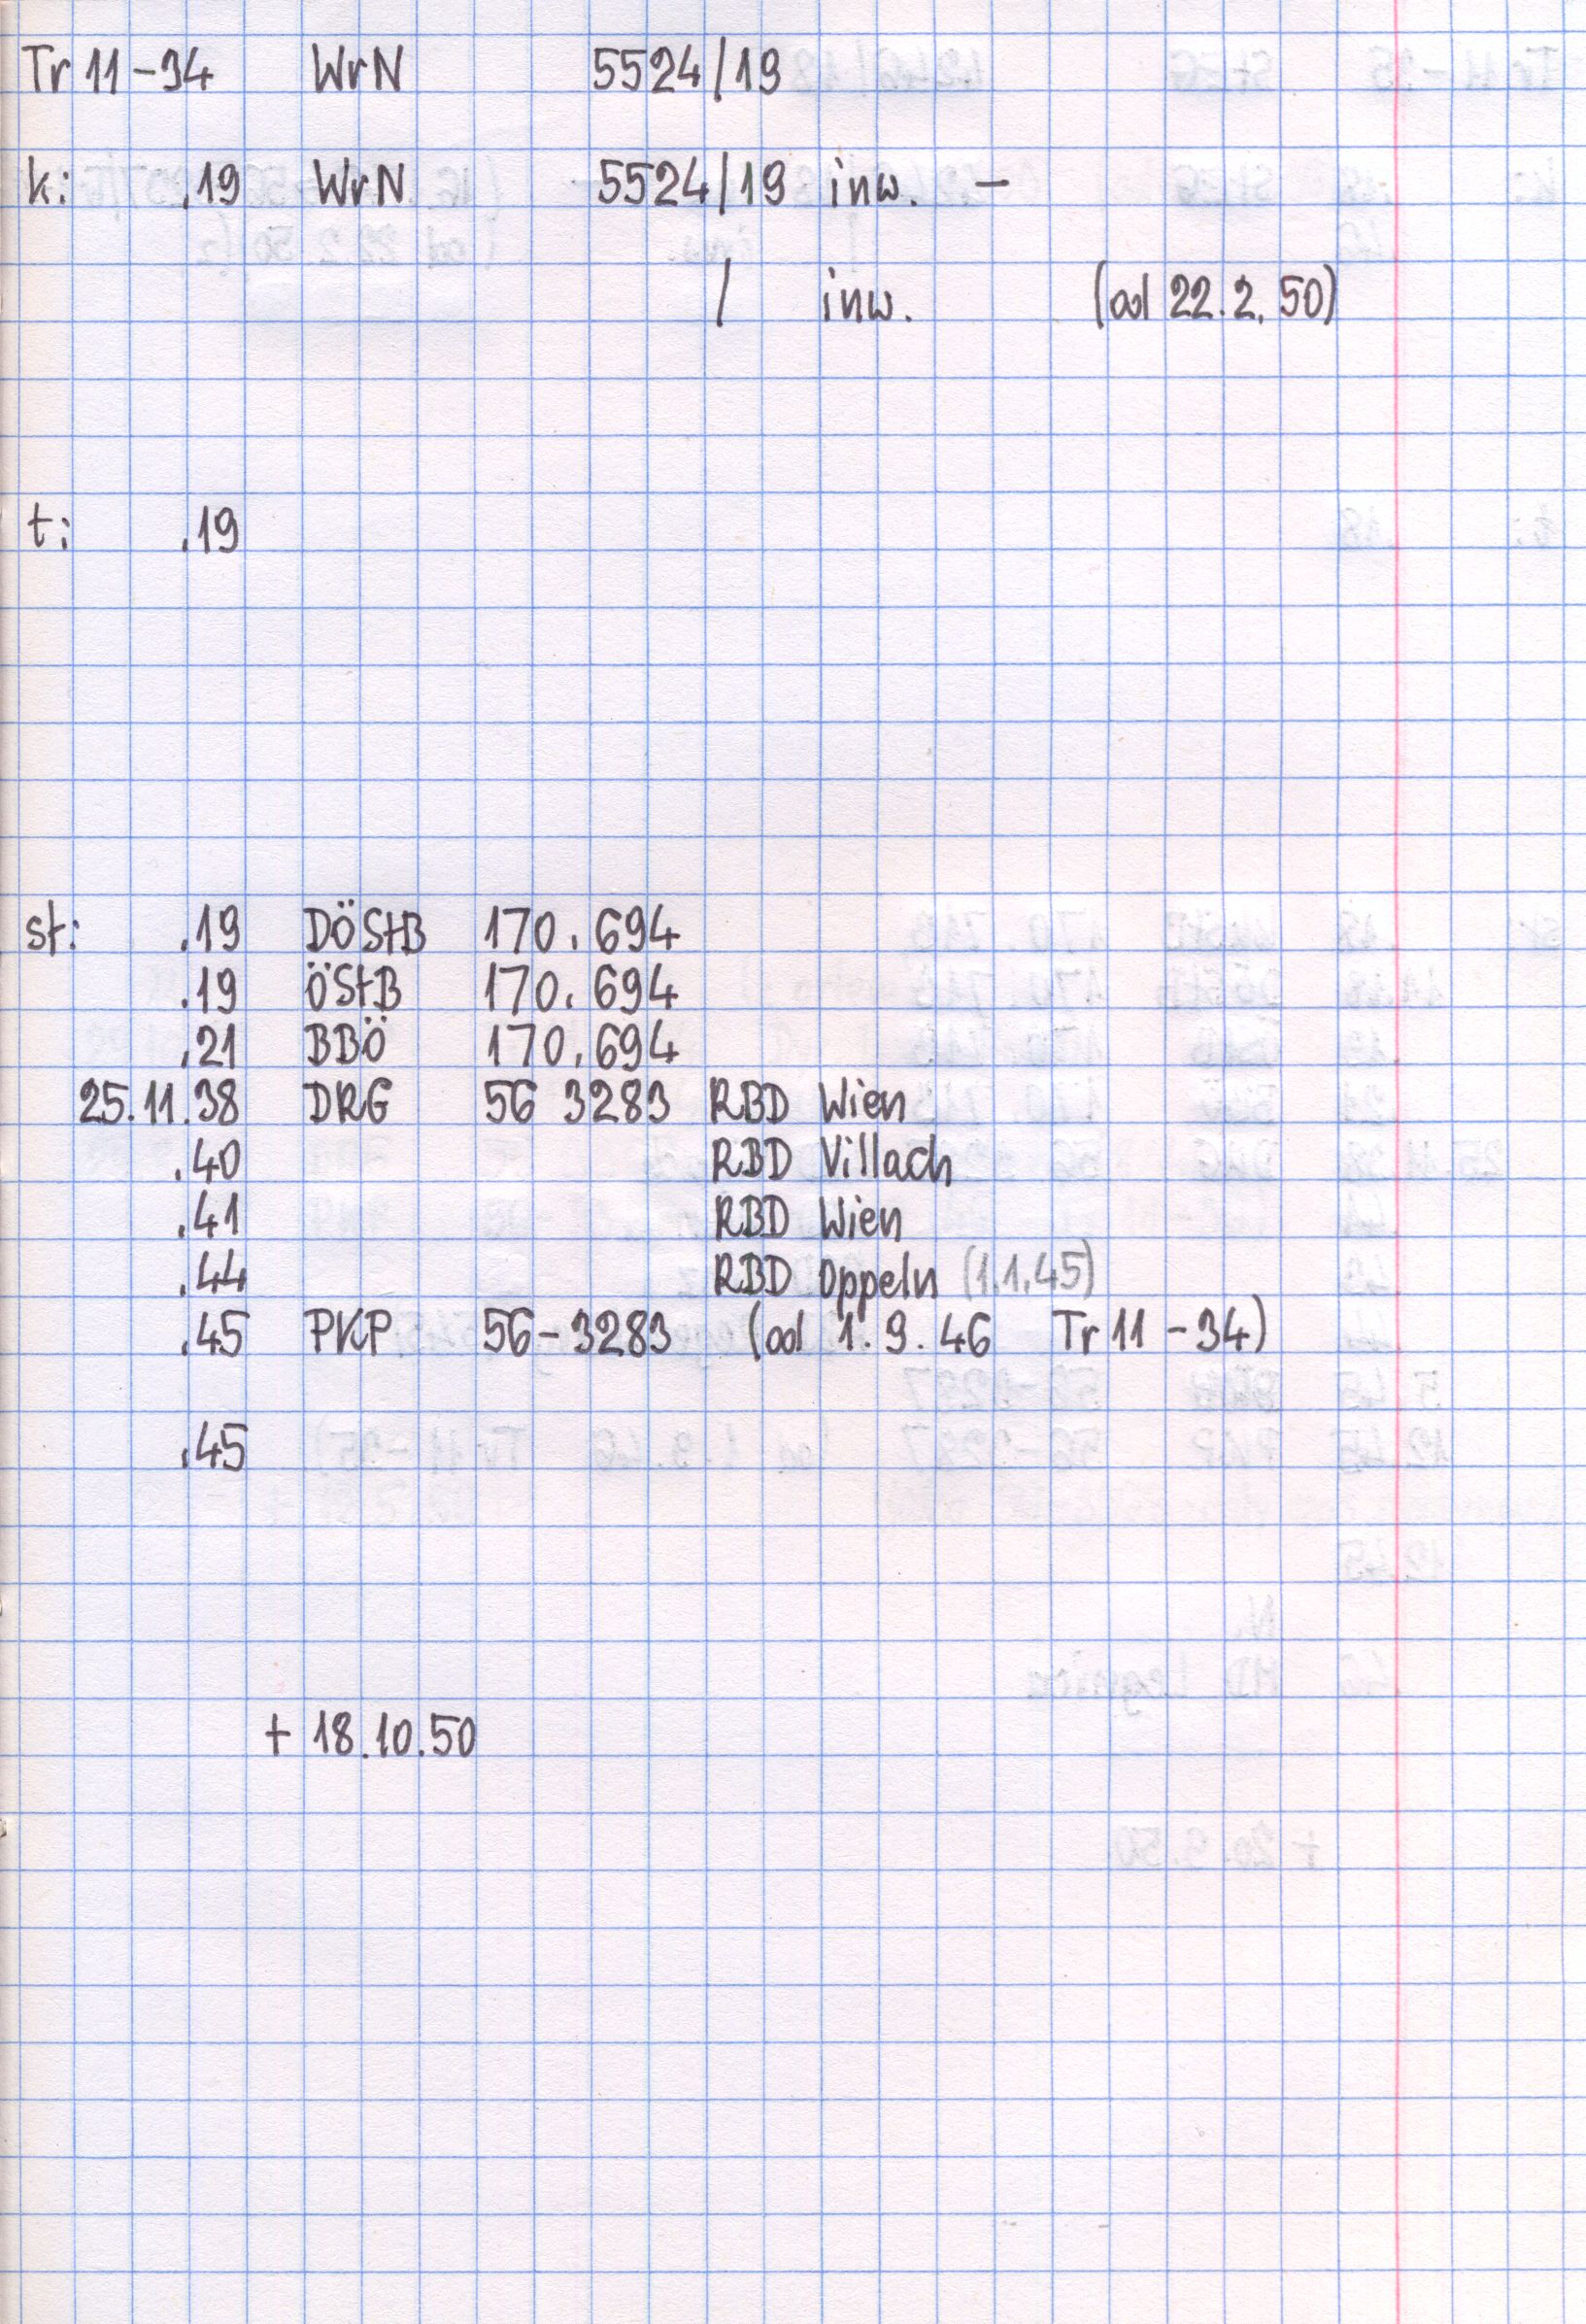 Tr 11-34 WrN 5524/19
k: .19 WrN 5524/19 inw. -
/ inw. (od 22.2.50)
t: .19
st: .19 DÖStB 170.694
.19 ÖStB 170.694
.21 BBÖ 170.694
25.11.38 DRG 56 3283 RBD Wien
.40 RBD Villach
.41 RBD Wien
.44 RBD Oppeln (1.1.45)
.45 PKP 56-3283 (od 1.9.46 Tr 11-34)
.45
+ 18.10.50